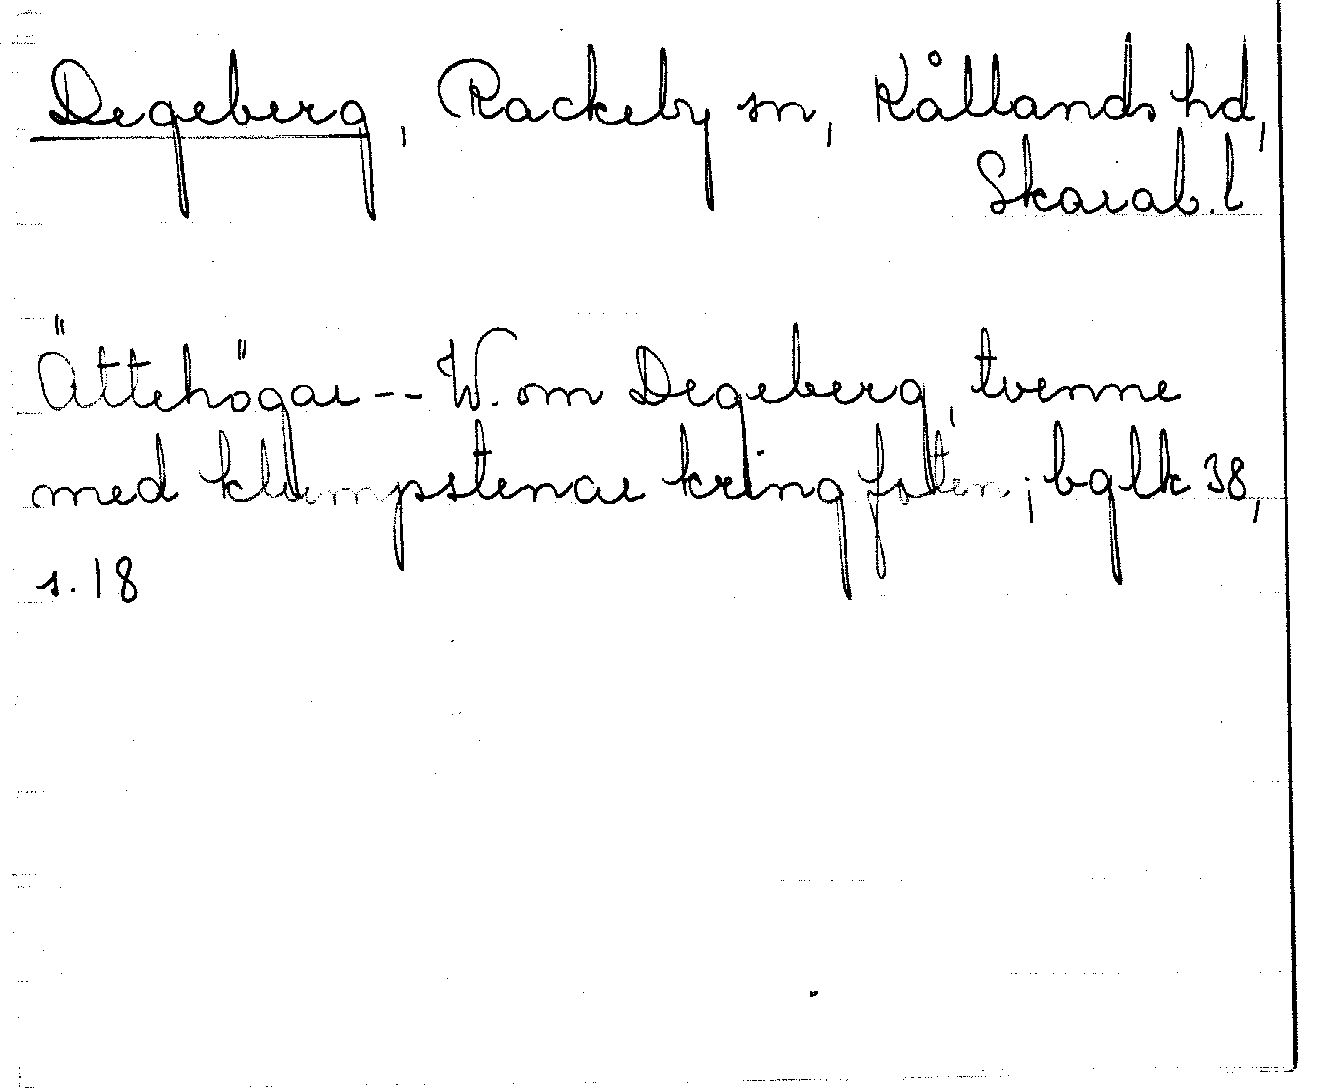 Degeberg, Rackeby sn, Kållands hd,
Skarab. l
Ättehögar -- W. om Degeberg, tvenne
med klumpstenar kring foten; bglk 38,
s. 18